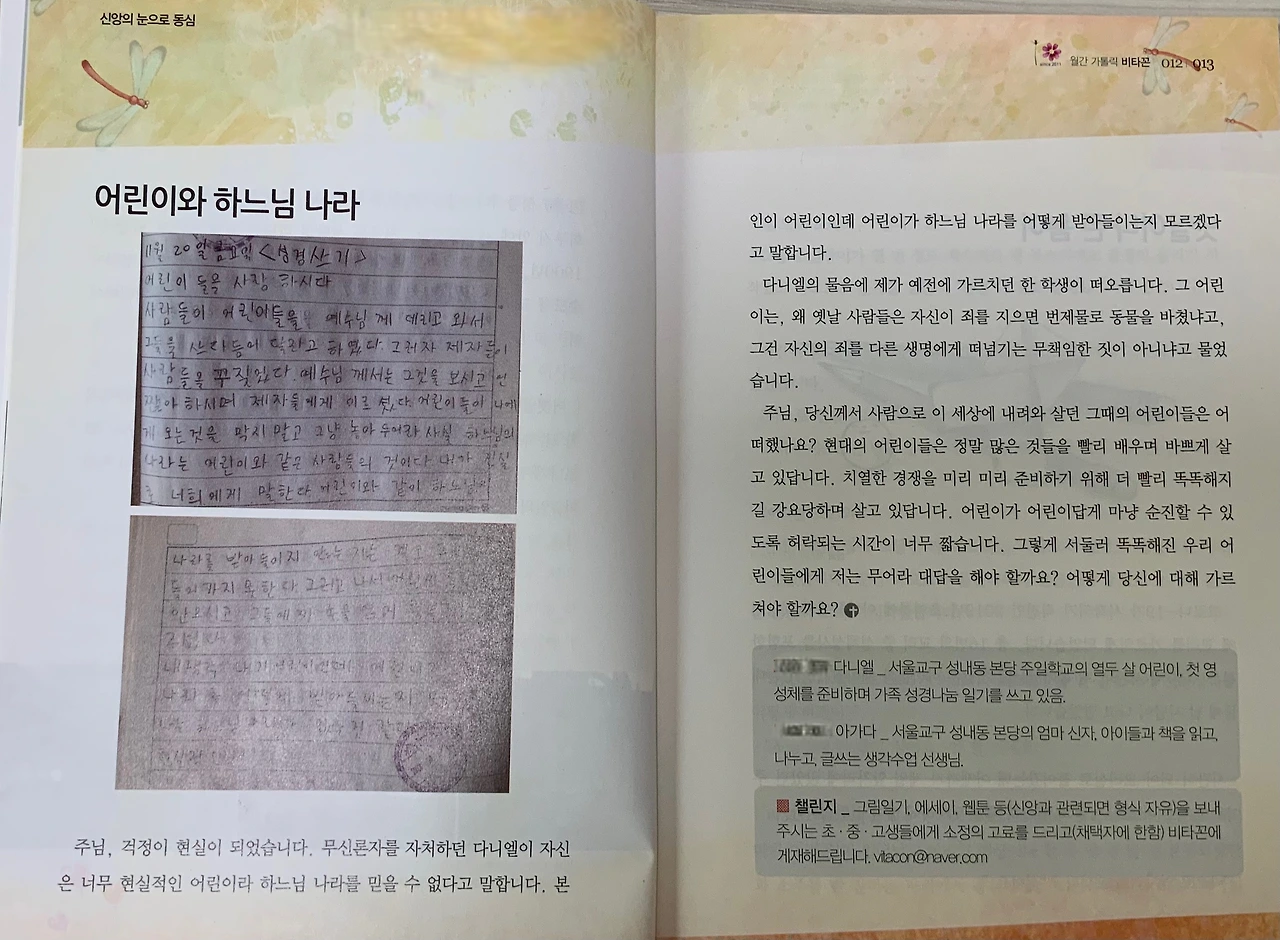 신앙의 눈으로 동심
어린이와 하느님 나라
11월 20일 금요일 <성경쓰기>
어린이 들을 사랑 하시다
사람들이 어린아들을 예수님 께 데리고 와서
그들을 쓰다듬어 달라고 하였다. 그러자 제자들이
사람들을 꾸짖었다. 예수님 께서는 그것을 보시고 언
짢아 하시며 제자들에게 이르셨다. 어린이들이 나에
게 오는것을 막지 말고 그냥 놓아 두어라 사실 하느님의
나라는 어린이와 같은 사람들의 것이다 내가 진실
로 너희에게 말한다 어린이와 같이 하느님의
나라를 받아들이지 않는 자는 결코
들어가지 못한다. 그러고 나서 어린이
안으시고 그들에게
주님, 걱정이 현실이 되었습니다. 무신론자를 자처하던 다니엘이 자신
은 너무 현실적인 어린이라 하느님 나라를 믿을 수 없다고 말합니다. 본
since 2011
월간 가톨릭 비타꼰 012 013
인이 어린이인데 어린이가 하느님 나라를 어떻게 받아들이는지 모르겠다
고 말합니다.
다니엘의 물음에 제가 예전에 가르치던 한 학생이 떠오릅니다. 그 어린
이는, 왜 옛날 사람들은 자신이 죄를 지으면 번제물로 동물을 바쳤냐고,
그건 자신의 죄를 다른 생명에게 떠넘기는 무책임한 짓이 아니냐고 물었
습니다.
주님, 당신께서 사람으로 이 세상에 내려와 살던 그때의 어린이들은 어
떠했나요? 현대의 어린이들은 정말 많은 것들을 빨리 배우며 바쁘게 살
고 있답니다. 치열한 경쟁을 미리 미리 준비하기 위해 더 빨리 똑똑해지
길 강요당하며 살고 있답니다. 어린이가 어린이답게 마냥 순진할 수 있
도록 허락되는 시간이 너무 짧습니다. 그렇게 서둘러 똑똑해진 우리 어
린이들에게 저는 무어라 대답을 해야 할까요? 어떻게 당신에 대해 가르
쳐야 할까요?
다니엘 _ 서울교구 성내동 본당 주일학교의 열두 살 어린이, 첫 영
성체를 준비하며 가족 성경나눔 일기를 쓰고 있음.
아가다 _ 서울교구 성내동 본당의 엄마 신자, 아이들과 책을 읽고,
나누고, 글쓰는 생각수업 선생님.
챌린지 _ 그림일기, 에세이, 웹툰 등(신앙과 관련되면 형식 자유)을 보내
주시는 초·중·고생들에게 소정의 고료를 드리고(채택자에 한함) 비타꼰에
게재해드립니다. vitacon@naver.com